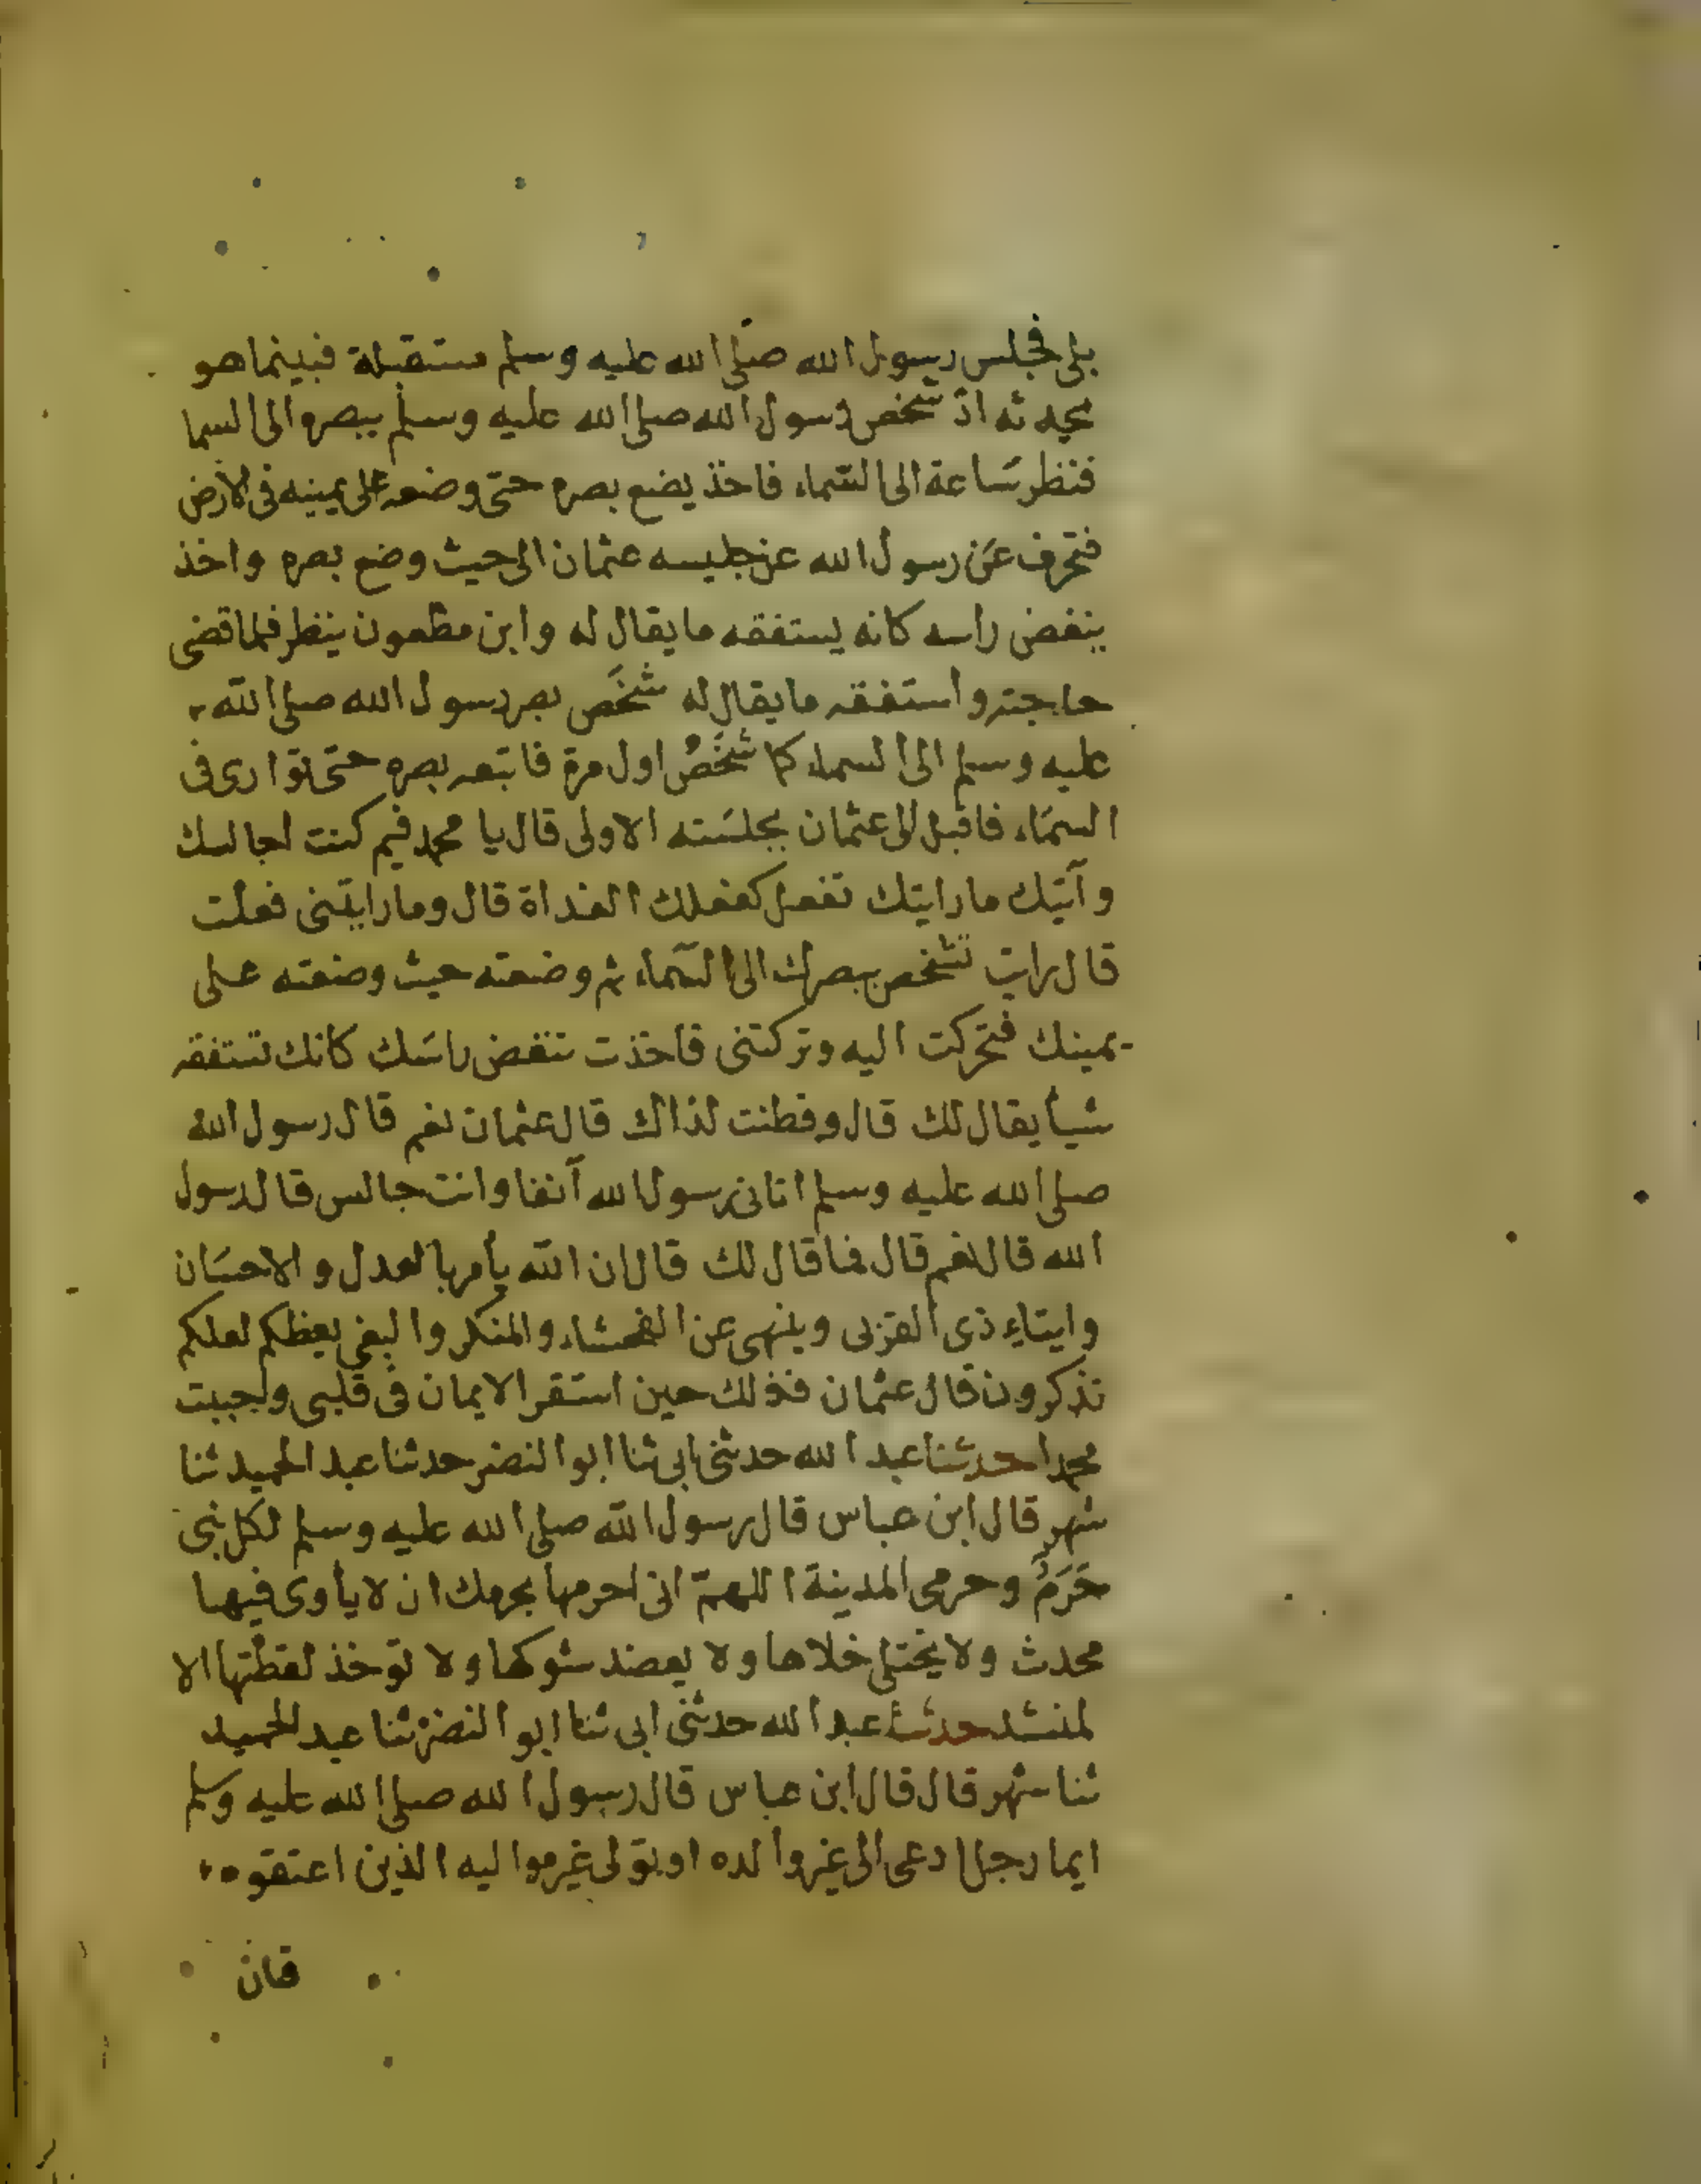 بلى فجلس رسول الله صلى الله عليه وسلم مستقبلة فبينما هو
يحدثه اذ شخص رسول الله صلى الله عليه وسلم ببصره الى السما
فنظر ساعة الى السماء فاخذ يضع بصره حتى وضعه على يمينه في الارض
فتحرف عن رسول الله عن جليسه عثمان الى حيث وضع بصره واخذ
ينغض راسه كانه يستفقه ما يقال له وابن مظعون ينظر فلما قضى
حاجته واستفقه ما يقال له شخَص بصر رسول الله صلى الله
عليه وسلم الى السماء كما شخَصُ اول مرة فاتبعه بصره حتى توارى في
السماء فاقبل الى عثمان بجلسته الاولى قال يا محمد فيم كنت اجالسك
وآتيك ما رايتك تفعل كفعلك الغداة قال وما رايتنى فعلت
قال رايت تشخص ببصرك الى السماء ثم وضعته حيث وضعته على
يمينك فتحركت اليه وتركتنى فاخذت تنغض راسك كانك تستفقه
شيأ يقال لك قال وفطنت لذاك قال عثمان نعم قال رسول الله
صلى الله عليه وسلم اتانى رسول الله آنفا وانت جالس قال رسول
الله قال نعم قال فما قال لك قال ان الله يأمر بالعدل والاحسان
وايتاءِ ذى القربى وينهى عن الفحشاء والمنكر والبغي يعظكم لعلكم
تذكرون قال عثمان فذلك حين استقر الايمان في قلبى واجببت
محمدا حدثنا عبد الله حدثنى ابى ثنا ابو النضر حدثنا عبد الحميد ثنا
شهر قال ابن عباس قال رسول الله صلى الله عليه وسلم لكل نبى
حَرَمٌ وحرمى المدينة اللهمّ انى احرمها بحرمك ان لا يأوى فيها
محدث ولا يختلى خلاها ولا يعضد شوكها ولا توخذ لقطتها الا
لمنشد حدثنا عبد الله حدثنى ابى ثنا ابو النضر ثنا عبد الحميد
ثنا شهر قال قال ابن عباس قال رسول الله صلى الله عليه وسلم
ايما رجل ادعى الى غير والده او تولى غير مواليه الذين اعتقوه
فان